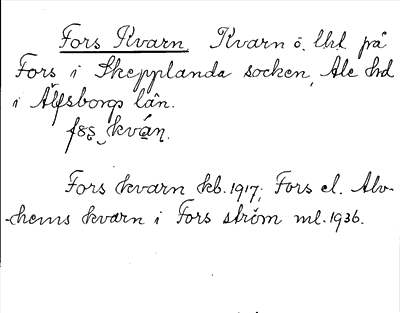 Fors Kvarn. Kvarn o. lht på
Fors i Skepplanda socken, Ale hd
i Älfsborgs län.
kván.
Fors kvarn kb. 1917; Fors el. Alv-
-hems kvarn i Fors ström ml. 1936.